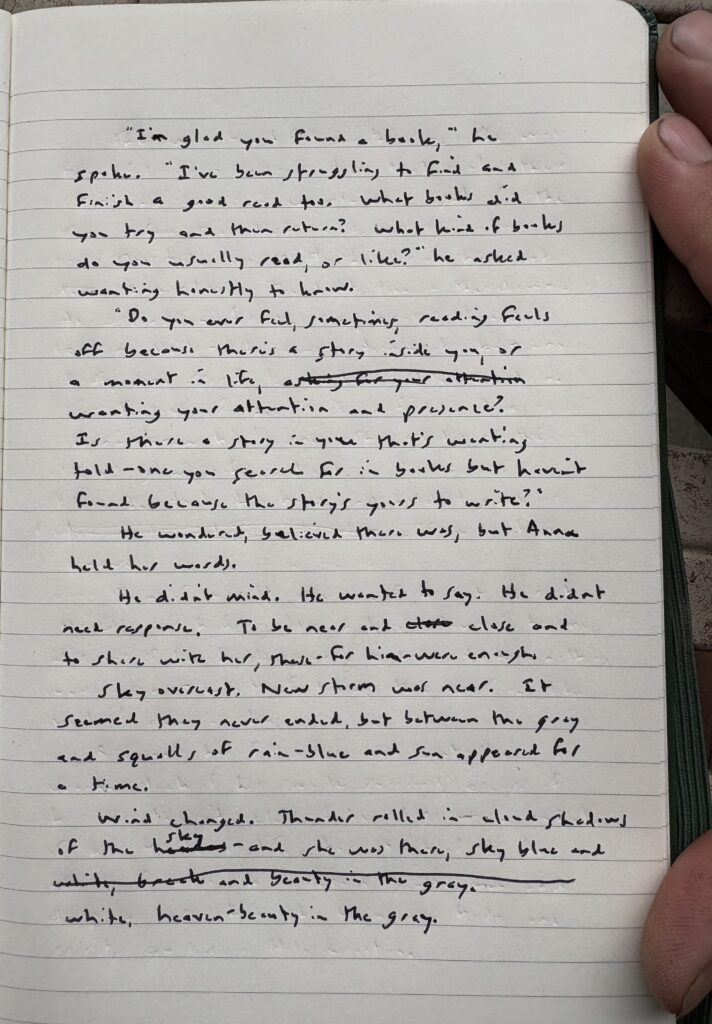 "I'm glad you found a book," he
spoke. "I've been struggling to find and
finish a good read too. What books did
you try and then return? What kind of books
do you usually read, or like?" he asked
wanting honestly to know.
"Do you ever feel, sometimes, reading feels
off because there's a story inside you, or
a moment in life, asking for your attention
wanting your attention and presence?
Is there a story in you that's wanting
told—one you search for in books but haven't
found because the story's yours to write?"
He wondered, believed there was, but Anna
held her words.
He didn't mind. He wanted to say. He didn't
need response. To be near and close close and
to share with her, these—for him—were enough.
Sky overcast. New storm was near. It
seemed they never ended, but between the gray
and squalls of rain—blue and sun appeared for
a time.
Wind changed. Thunder rolled in cloud shadows
sky
of the —and she was there, sky blue and
white, break and beauty in the gray.
white, heaven-beauty in the gray.